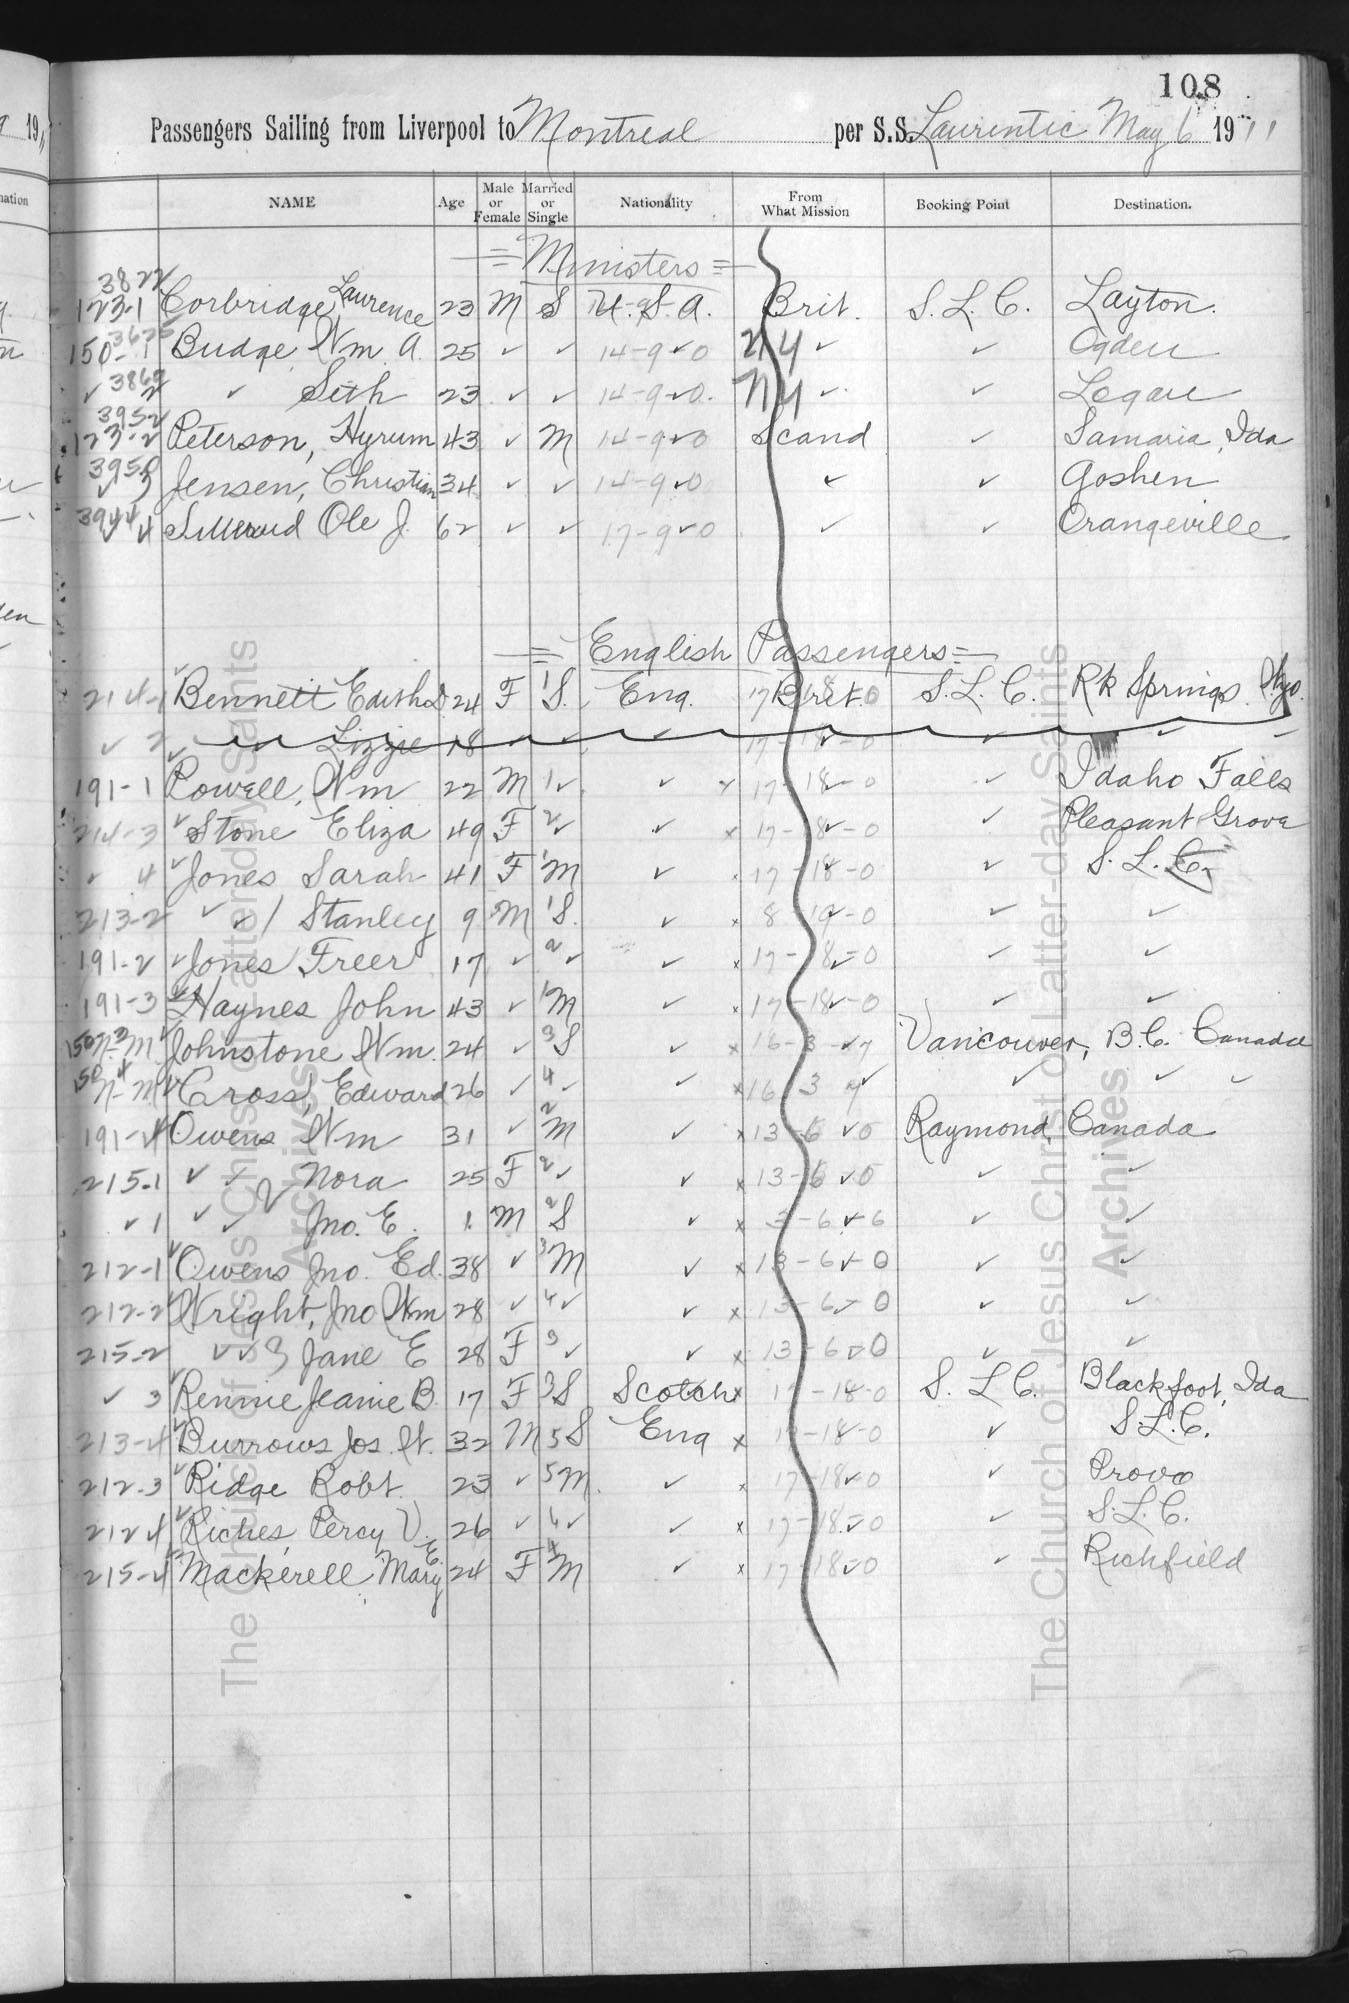 108
Passengers Sailing from Liverpool to Montreal per S.S. Laurentic May 6 1911
NAME Age Male or Female Married or Single Nationality From What Mission Booking Point Destination.
= Ministers =
3822
123-1 Corbridge, Laurence 23 M S U.S.A. Brit. S.L.C. Layton.
150-1 Budge, Wm A. 25 ✓ ✓ 14-9-0 NY ✓ ✓ Ogden
✓ 2 ✓ Seth 23 ✓ ✓ 14-9-0. NY ✓ ✓ Logan
3952
123-2 Peterson, Hyrum 43 ✓ M 14-9-0 Scand ✓ Samaria, Ida
3950
✓ 3 Jensen, Christian 34 ✓ ✓ 14-9-0 ✓ ✓ Goshen
3944
✓ 4 Ole J. 62 ✓ ✓ 17-9-0 ✓ ✓ Orangeville
= English Passengers =
214-1 Bennett Edith D 24 F 1 S. Eng. Brit. S.L.C. Rk Springs Wyo.
✓ 2 Lizzie 18 ✓ ✓ ✓ 17-18-0 ✓ ✓
191-1 Powell, Wm 22 M 1 ✓ ✓ 17-18-0 ✓ Idaho Falls
214-3 Stone Eliza 49 F 2 ✓ ✓ x 17-18-0 ✓ Pleasant Grove
✓ 4 Jones Sarah 41 F 1 M ✓ 17-18-0 ✓ S.L.C.
213-2 ✓ ✓ 1 Stanley 9 M 1 S. ✓ x 8-19-0 ✓ ✓
191-2 Jones Freer 17 ✓ 2 ✓ ✓ x 17-18-0 ✓ ✓
191-3 Haynes John 43 ✓ 1 M ✓ x 17-18-0 ✓ ✓
150-3 N-M Johnstone Wm. 24 ✓ 3 S ✓ x 16-3-7 Vancouver, B.C. Canada
150-4 N-M Cross, Edward 26 ✓ 4 ✓ ✓ x 16 3 7 ✓ ✓ ✓
191-4 Owens Wm 31 ✓ 2 M ✓ x 13-6-0 Raymond, Canada
215-1 ✓ ✓ Nora 25 F 2 ✓ ✓ x 13-6-0 ✓ ✓
✓ 1 ✓ ✓ Jno. E. 1 M 2 S ✓ x 3-6-6 ✓ ✓
212-1 Owens Jno. Ed. 38 ✓ 3 M ✓ x 13-6-0 ✓ ✓
212-2 Wright, Jno Wm 28 ✓ 4 ✓ ✓ x 13-6-0 ✓ ✓
215-2 ✓ ✓ 3 Jane E 28 F 3 ✓ ✓ x 13-6-0 ✓ ✓
✓ 3 Rennie Jeanie B. 17 F 3 S Scotch x 17-18-0 S.L.C. Blackfoot, Ida
213-4 Burrows Jos. W. 32 M 5 S Eng x 17-18-0 ✓ S.L.C.
212-3 Ridge Robt. 23 ✓ 5 M. ✓ x 17-18-0 ✓ Provo
212 4 Riches, Percy V. 26 ✓ 6 ✓ ✓ x 17-18-0 ✓ S.L.C.
215-4 Mackerell Mary E. 24 F 4 M ✓ x 17-18-0 ✓ Richfield
The Church of Jesus Christ of Latter-day Saints
Archives
The Church of Jesus Christ of Latter-day Saints
Archives